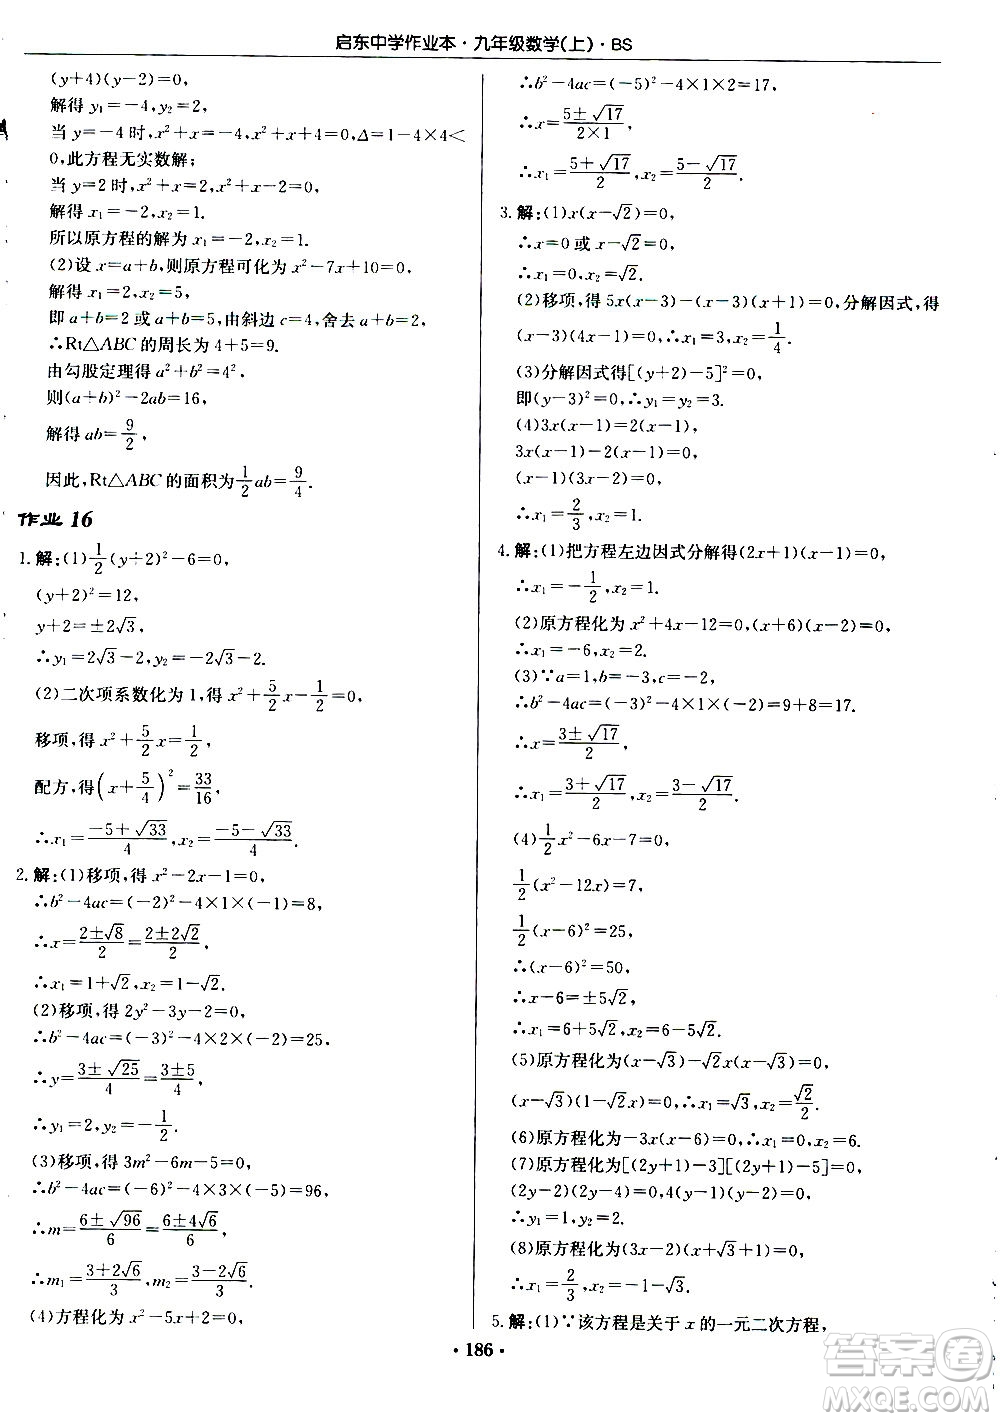 启东中学作业本·九年级数学(上)·BS
(y+4)(y-2)=0,
解得 y₁=-4,y₂=2,
当 y=-4 时,x²+x=-4,x²+x+4=0,Δ=1-4×4<
0,此方程无实数解;
当 y=2 时,x²+x=2,x²+x-2=0,
解得 x₁=-2,x₂=1.
所以原方程的解为 x₁=-2,x₂=1.
(2)设 x=a+b,则原方程可化为 x²-7x+10=0,
解得 x₁=2,x₂=5,
即 a+b=2 或 a+b=5,由斜边 c=4,舍去 a+b=2,
∴Rt△ABC 的周长为 4+5=9.
由勾股定理得 a²+b²=4².
则(a+b)²-2ab=16,
解得 ab=9/2,
因此,Rt△ABC 的面积为1/2ab=9/4.
作业 16
1.解:(1)1/2(y+2)²-6=0,
(y+2)²=12,
y+2=±2√3,
∴y₁=2√3-2,y₂=-2√3-2.
(2)二次项系数化为 1,得 x²+5/2x-1/2=0,
移项,得 x²+5/2x=1/2,
配方,得(x+5/4)²=33/16,
∴x₁=(-5+√33)/4,x₂=(-5-√33)/4.
2.解:(1)移项,得 x²-2x-1=0,
∴b²-4ac=(-2)²-4×1×(-1)=8,
∴x=(2±√8)/2=(2±2√2)/2,
∴x₁=1+√2,x₂=1-√2.
(2)移项,得 2y²-3y-2=0,
∴b²-4ac=(-3)²-4×2×(-2)=25.
∴y=(3±√25)/4=(3±5)/4,
∴y₁=2,y₂=-1/2.
(3)移项,得 3m²-6m-5=0,
∴b²-4ac=(-6)²-4×3×(-5)=96,
∴m=(6±√96)/6=(6±4√6)/6,
∴m₁=(3+2√6)/3,m₂=(3-2√6)/3.
(4)方程化为 x²-5x+2=0,
∴b²-4ac=(-5)²-4×1×2=17,
∴x=(5±√17)/(2×1),
∴x₁=(5+√17)/2,x₂=(5-√17)/2.
3.解:(1)x(x-√2)=0,
∴x=0 或 x-√2=0,
∴x₁=0,x₂=√2.
(2)移项,得 5x(x-3)-(x-3)(x+1)=0,分解因式,得
(x-3)(4x-1)=0,∴x₁=3,x₂=1/4.
(3)分解因式得[(y+2)-5]²=0,
即(y-3)²=0,∴y₁=y₂=3.
(4)3x(x-1)=2(x-1),
3x(x-1)-2(x-1)=0,
(3x-2)(x-1)=0,
∴x₁=2/3,x₂=1.
4.解:(1)把方程左边因式分解得(2x+1)(x-1)=0,
∴x₁=-1/2,x₂=1.
(2)原方程化为 x²+4x-12=0,(x+6)(x-2)=0,
∴x₁=-6,x₂=2.
(3)∵a=1,b=-3,c=-2,
∴b²-4ac=(-3)²-4×1×(-2)=9+8=17.
∴x=(3±√17)/2,
∴x₁=(3+√17)/2,x₂=(3-√17)/2.
(4)1/2x²-6x-7=0,
1/2(x²-12x)=7,
1/2(x-6)²=25,
∴(x-6)²=50,
∴x-6=±5√2,
∴x₁=6+5√2,x₂=6-5√2.
(5)原方程化为(x-√3)-√2x(x-√3)=0,
(x-√3)(1-√2x)=0,∴x₁=√3,x₂=√2/2.
(6)原方程化为-3x(x-6)=0,∴x₁=0,x₂=6.
(7)原方程化为[(2y+1)-3][(2y+1)-5]=0,
(2y-2)(2y-4)=0,4(y-1)(y-2)=0,
∴y₁=1,y₂=2.
(8)原方程化为(3x-2)(x+√3+1)=0,
∴x₁=2/3,x₂=-1-√3.
5.解:(1)∵该方程是关于 x 的一元二次方程,
·186·
答案圈
MXQE.COM